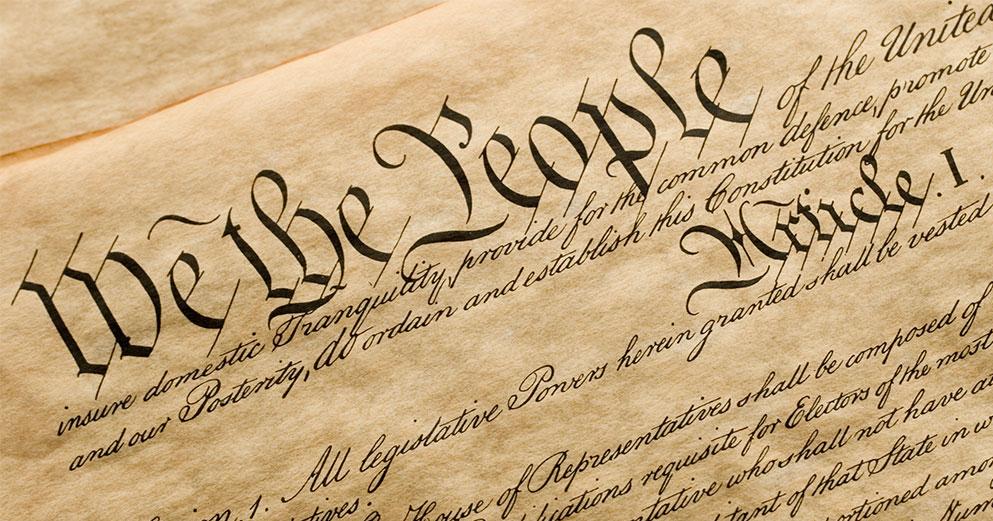 We the People of the United
insure domestic Tranquility, provide for the common defence, promote
and our Posterity, do ordain and establish this Constitution for the Un
Article. I.
on. 1. All legislative Powers herein granted shall be vested
tives.
House of Representatives shall be composed of
ications requisite for Electors of the most
ntative who shall not have a
tant of that State in w
ortioned amon
Num